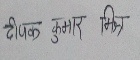 दीपक कुमार मिश्र